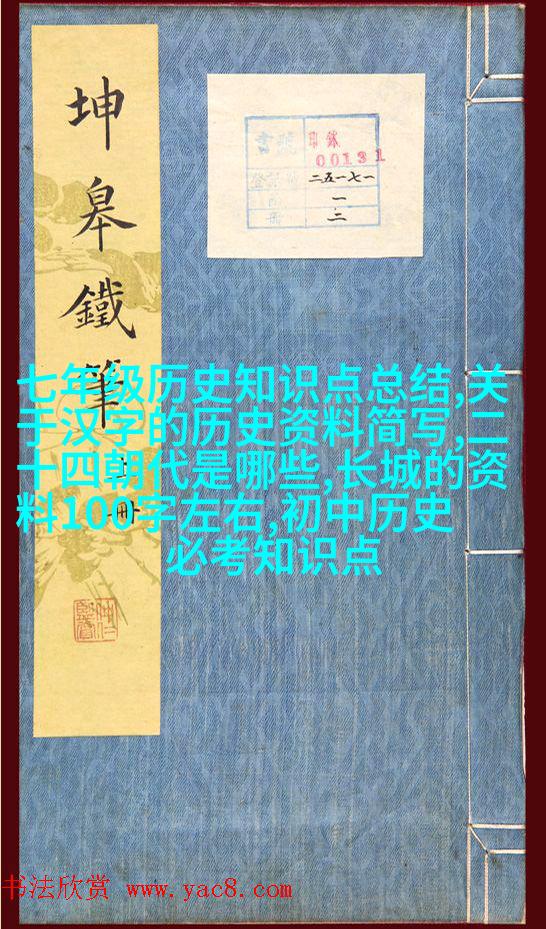 坤皋鐵筆
冊
書號
印鉥
00131
登記號
二五一七一
一
冊
二
七年级历史知识点总结,关
于汉字的历史资料简写,二
十四朝代是哪些,长城的资
料100字左右,初中历史
必考知识点
书法欣赏 www.yac8.com